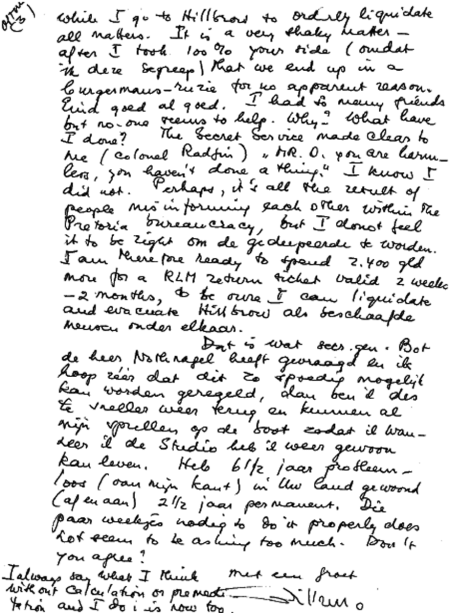 while I go to Hillbrow to orderly liquidate
all matters. It is a very shaky matter –
after I took 100% your side (omdat
ik deze begreep) that we end up in a
burgermans-ruzie for no apparent reason.
Eind goed al goed. I had so many friends
but no-one seems to help. Why? What have
I done? The Secret Service made clear to
me (colonel ) "MR. O. you are harm-
less, you haven't done a thing." I know I
did not. Perhaps, it's all the result of
people misinforming each other within the
Pretoria bureaucracy, but I do not feel
it to be right om de gedupeerde te worden.
I am therefore ready to spend 2.400 gld
more for a KLM return ticket valid 2 weeks
– 2 months, to be sure I can liquidate
and evacuate Hillbrow als beschaafde
mensen onder elkaar.
Dat is wat secr. gen. Bot
de heer Nothnagel heeft gevraagd en ik
hoop zéér dat dit zo spoedig mogelijk
kan worden geregeld, dan ben ik des
te sneller weer terug en kunnen al
mijn spullen op de boot zodat ik wan-
neer ik de Studio heb ik weer gewoon
kan leven. Heb 6 1/2 jaar probleem-
loos (van mijn kant) in Uw land gewoond
(af en aan) 2 1/2 jaar permanent. Die
paar weekjes nodig to do it properly does
not seem to be asking too much. Don't
you agree?
Met een groet
Willem O
I always say what I think
without calculation or premedi-
tation and I do is now too.